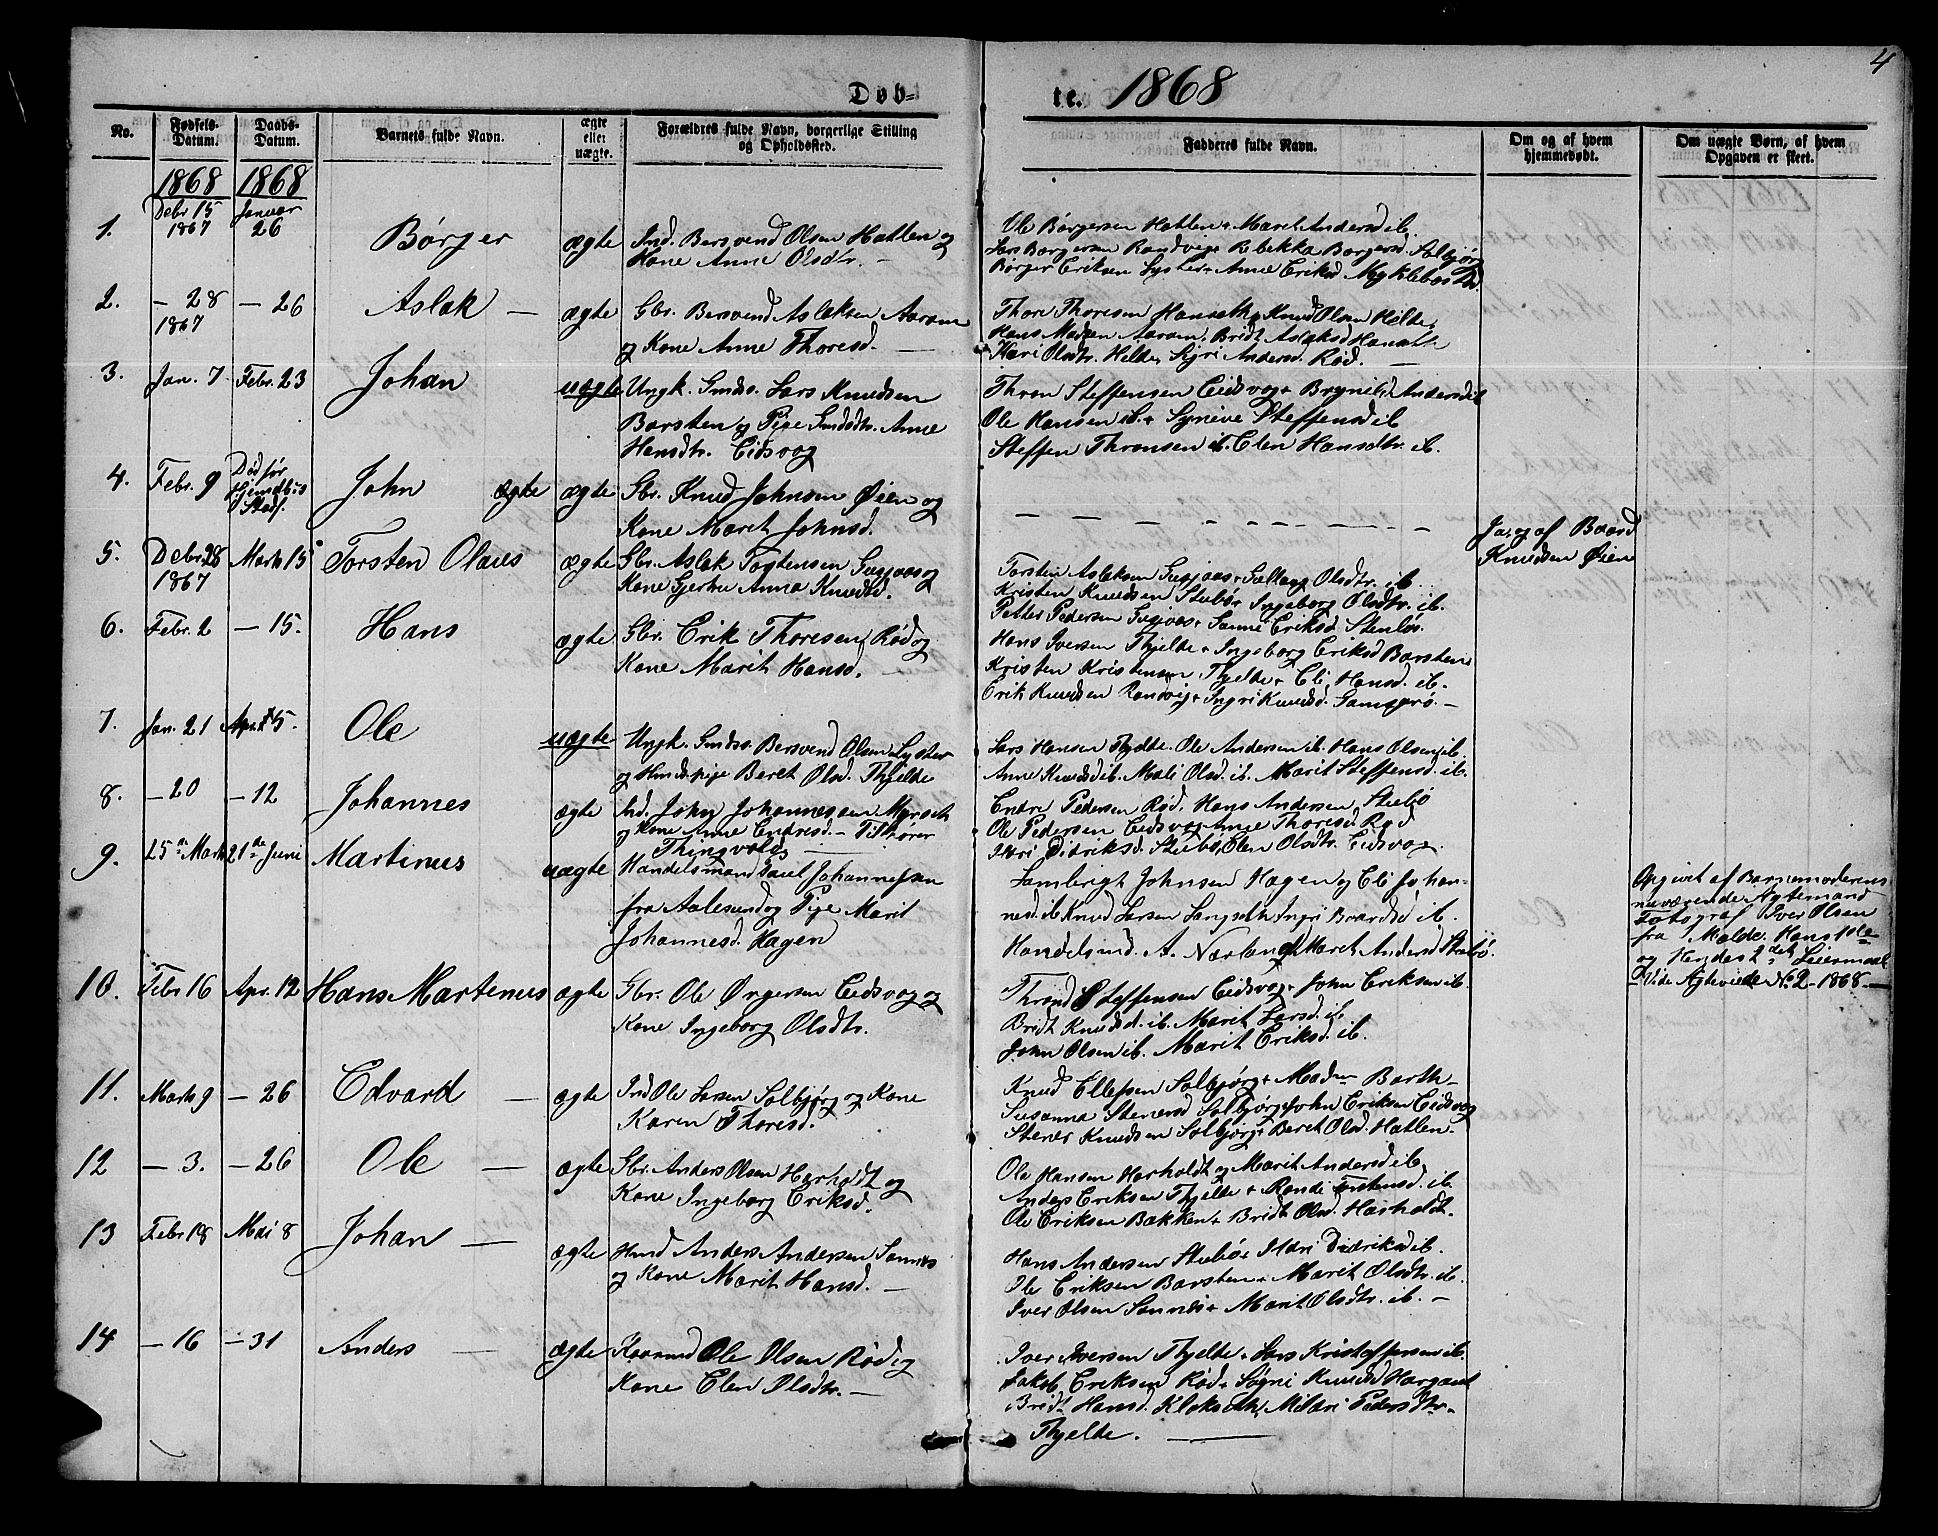 4
Døb-
te. 1868
No.
Fødsels-
Datum.
Daabs-
Datum.
Barnets fulde Navn.
ægte
eller
uægte.
Forældres fulde Navn, borgerlige Stilling
og Opholdssted.
Fadderes fulde Navn.
Om og af hvem
hjemmedøbt.
Om uægte Børn, af hvem
Opgaven er skeet.
1868 1868
1. Debr 15 1867 Januar 26 Børger ægte Ind. Bersvend Olsen Hatlen og
Kone Anne Olsdtr. —
Ole Børgersen Hatlen + Maret Andersd ib.
Lars Børgersen Randvig + Rebekka Børgersd. Solbjørg
Børger Eriksen Lyster + Anne Eriksd Myklebostad.
2. — 28 1867 — 26 Aslak — ægte Gbr. Bersvend Aslaksen Aaram
og Kone Anne Thoresd. —
Thore Thoresen Hanseth, Knud Olsen Helde,
Hans Madsen Aaram, Bridt Aslaksd Hanseth
Kari Olsdtr. Helde, Sigri Andersd. Rød. —
3. Jan. 7 Febr. 23 Johan uægte Ungk. Gmds. Lars Knudsen
Barsten og Pige Gmdsdtr. Anne
Hansdtr. Eidsvog
Thron Steffensen Eidsvog + Brynild Andersd ib
Ole Hansen ib. + Synive Steffensd ib
Steffen Thronsen ib. Elen Hansdtr. ib.
4. Febr. 9 Død før
Hjemdbs
Stadf. John ægte ægte Gbr. Knud Johnsen Øien og
Kone Marit Johnsd.
— — — — — — — — — —
Ja, og af Baard
Knudsen Øien
5. Debr. 28 1867 Marts 15 Torsten Olaus ægte Gbr. Aslak Torstensen Gusjaas og
Kone Gjertru Anna Knudsd.
Torsten Aslaksen Gusjaas + Olsdtr. ib.
Kristen Knudsen Stubø + Ingeborg Olsdtr. ib.
Petter Pedersen Gusjaas + Eriksd Stenløs.
6. Febr. 2 — 15. Hans ægte Gbr. Erik Thoresen Rød og
Kone Marit Hansd.
Hans Iversen Thjelde + Ingeborg Eriksd Barsten,
Kristen Kristensen Thjelde + Eli Hansd. ib.
Erik Knudsen Randvig + Ingri Knudsd. —
7. Jan. 21 Apr. 15. Ole uægte Ungk. Gmdss. Bersvend Olsen Lyster
og Hmds.pige Beret Olsd. Thjelde
Lars Hansen Thjelde. Ole Andersen ib. Hans Olsen ib.
Anne Knudsd ib. Mali Olsd. ib. Marit Steffensd. ib.
8. — 20 — 12 Johannes ægte Ind. John Johannessen Myrset
og Kone Anne Endresd. — Tilhører
Thingvold
Endre Pedersen Rød, Hans Andersen Stubø
Ole Pedersen Eidsvog Anne Thoresd. Rød
Ildri Didriksd. Stubø, Elen Olsdtr. Eidsvog.
9. 25de Marts 21de Juni Martinus uægte Handelsmand Johannesen
fra Aalesund og Pige Marit
Johannesd. Hagen
Lambregt Johnsen Hagen og Eli Johan-
nesd. ib Knud Larsen Langseth Ingri Baardsd ib.
Handelsmd. A. Nørland, Maret Andersd Stubø.
Opgivet af Barnemoderens
nuværende Ægtemand
Fotograf Iver Olsen
fra Molde. Hans 1ste
og Hendes 2det Leiermaal
Vide Ægteviede No 2 - 1868. —
10. Febr 16 Apr. 12 Hans Martinus ægte Gbr. Ole Øngersen Eidsvog og
Kone Ingeborg Olsdtr.
Thrond Steffensen Eidsvog + John Eriksen ib.
Bridt Knudsd. ib. Marit Larsd. ib
John Olsen ib. Marit Eriksd. ib.
11. Marts 9 — 26 Edvard — ægte Ind Ole Larsen Solbjørg og Kone
Karen Thoresd.
Knud Ellefsen Solbjørg + Madm Barth —
Susanna Stenersd Solbjørg John Eriksen Eidsvog
Stener Knudsen Solbjørg + Beret Olsd. Hatlen.
12 — 3. — 26 Ole — ægte Gbr. Anders Olsen Harholdt og
Kone Ingeborg Eriksd.
Ole Hansen Harholdt og Marit Andersd ib,
Anders Eriksen Thjelde + Randi Torstensd. ib
Ole Eriksen Bakken + Bridt Olsd. Harholdt.
13 Febr 18 Mai 8 Johan — ægte Hmd Anders Andersen Sannes
og Kone Marit Hansd. —
Hans Andersen Stubø + Ildri Didriksd ib.
Ole Eriksen Barsten + Marit Olsdtr. ib.
Iver Olsen Sannes + Marit Olsdtr. ib. —
14 — 16 — 31 Anders — ægte Kaarmd Ole Olsen Rød og
Kone Elen Olsdtr. —
Iver Iversen Thjelde + Lars Kristoffersen ib.
Jakob Eriksen Rød + Søgni Knudsd Hargaut
Bridt Hansd. Klokseth, Mildri Pedersdtr.
Thjelde. —